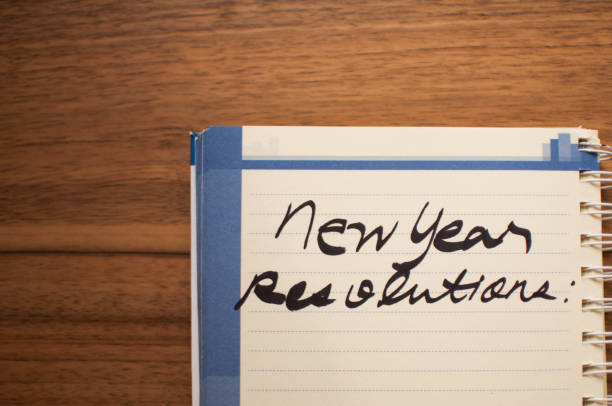 New Year
Resolutions: